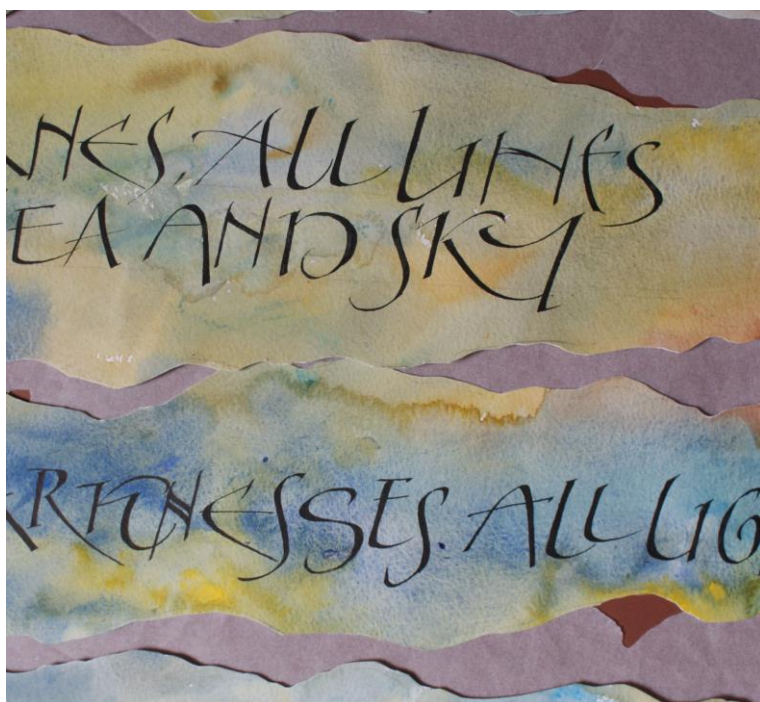 ANES, ALL LINES
EA AND SKY
ARKNESSES. ALL LIG